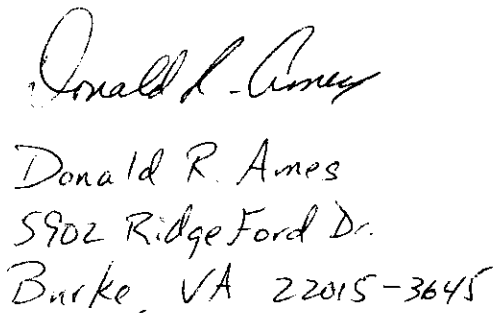 Donald R. Ames
Donald R. Ames
5902 Ridge Ford Dr.
Burke, VA 22015-3645